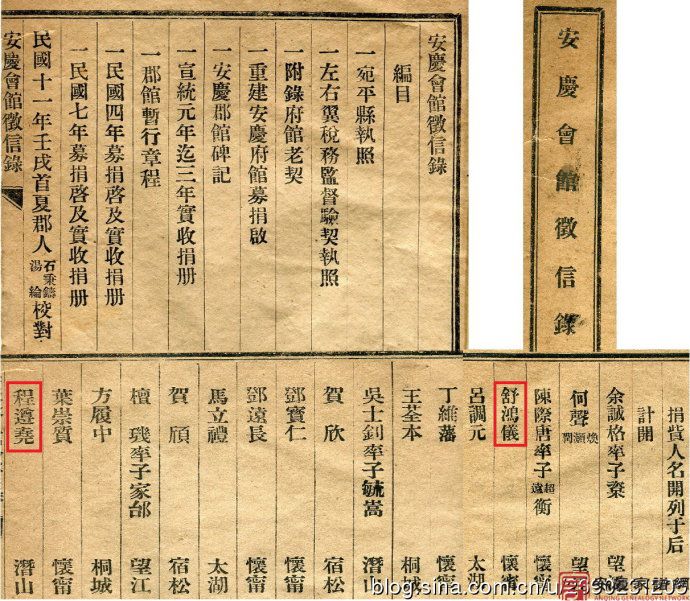 安慶會館徵信錄
安慶會館徵信錄
編目
一宛平縣執照
一左右翼稅務監督驗契執照
一附錄府館老契
一重建安慶府館募捐啟
一安慶郡館碑記
一宣統元年迄三年實收捐册
一郡館暫行章程
一民國四年募捐啓及實收捐册
一民國七年募捐啓及實收捐册
民國十一年壬戌首夏郡人石秉鑄湯綸校對
安慶會館徵信錄
捐貲人名開列于后
計開
余誠格率子棻 望
何聲煥灝潤 望
陳際唐率子超遠衡 懷甯
舒鴻儀 懷甯
呂調元 太湖
丁維藩 懷甯
王荃本 桐城
吳士釗率子毓嵩 潛山
賀欣 宿松
鄧寶仁 懷甯
鄧遠長 懷甯
馬立禮 太湖
賀頎 宿松
檀璣率子家邰 望江
方履中 桐城
葉崇質 懷甯
程遵堯 潛山
安慶家譜網
ANQING GENEALOGY NETWORK